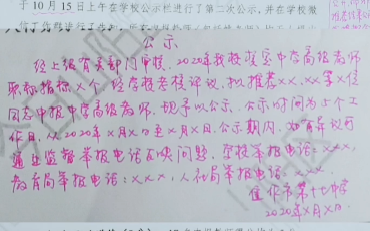 于 10 月 15 日上午在学校公示栏进行了第二次公示，并在学校微
公示
经上级有关部门审核，2020年我校核定中学高级教师
职称指标X个，经学校考核评议，拟推荐XX、XX等X位
同志申报中学高级教师，现予以公示，公示时间为5个工
作日，从2020年X月X日至X月X日，公示期内，如有异议可
通过监督举报电话反映问题，学校举报电话：XXX，
教育局举报电话：XXX，人社局举报电话：XXX
市第十七中学
2020年X月X日